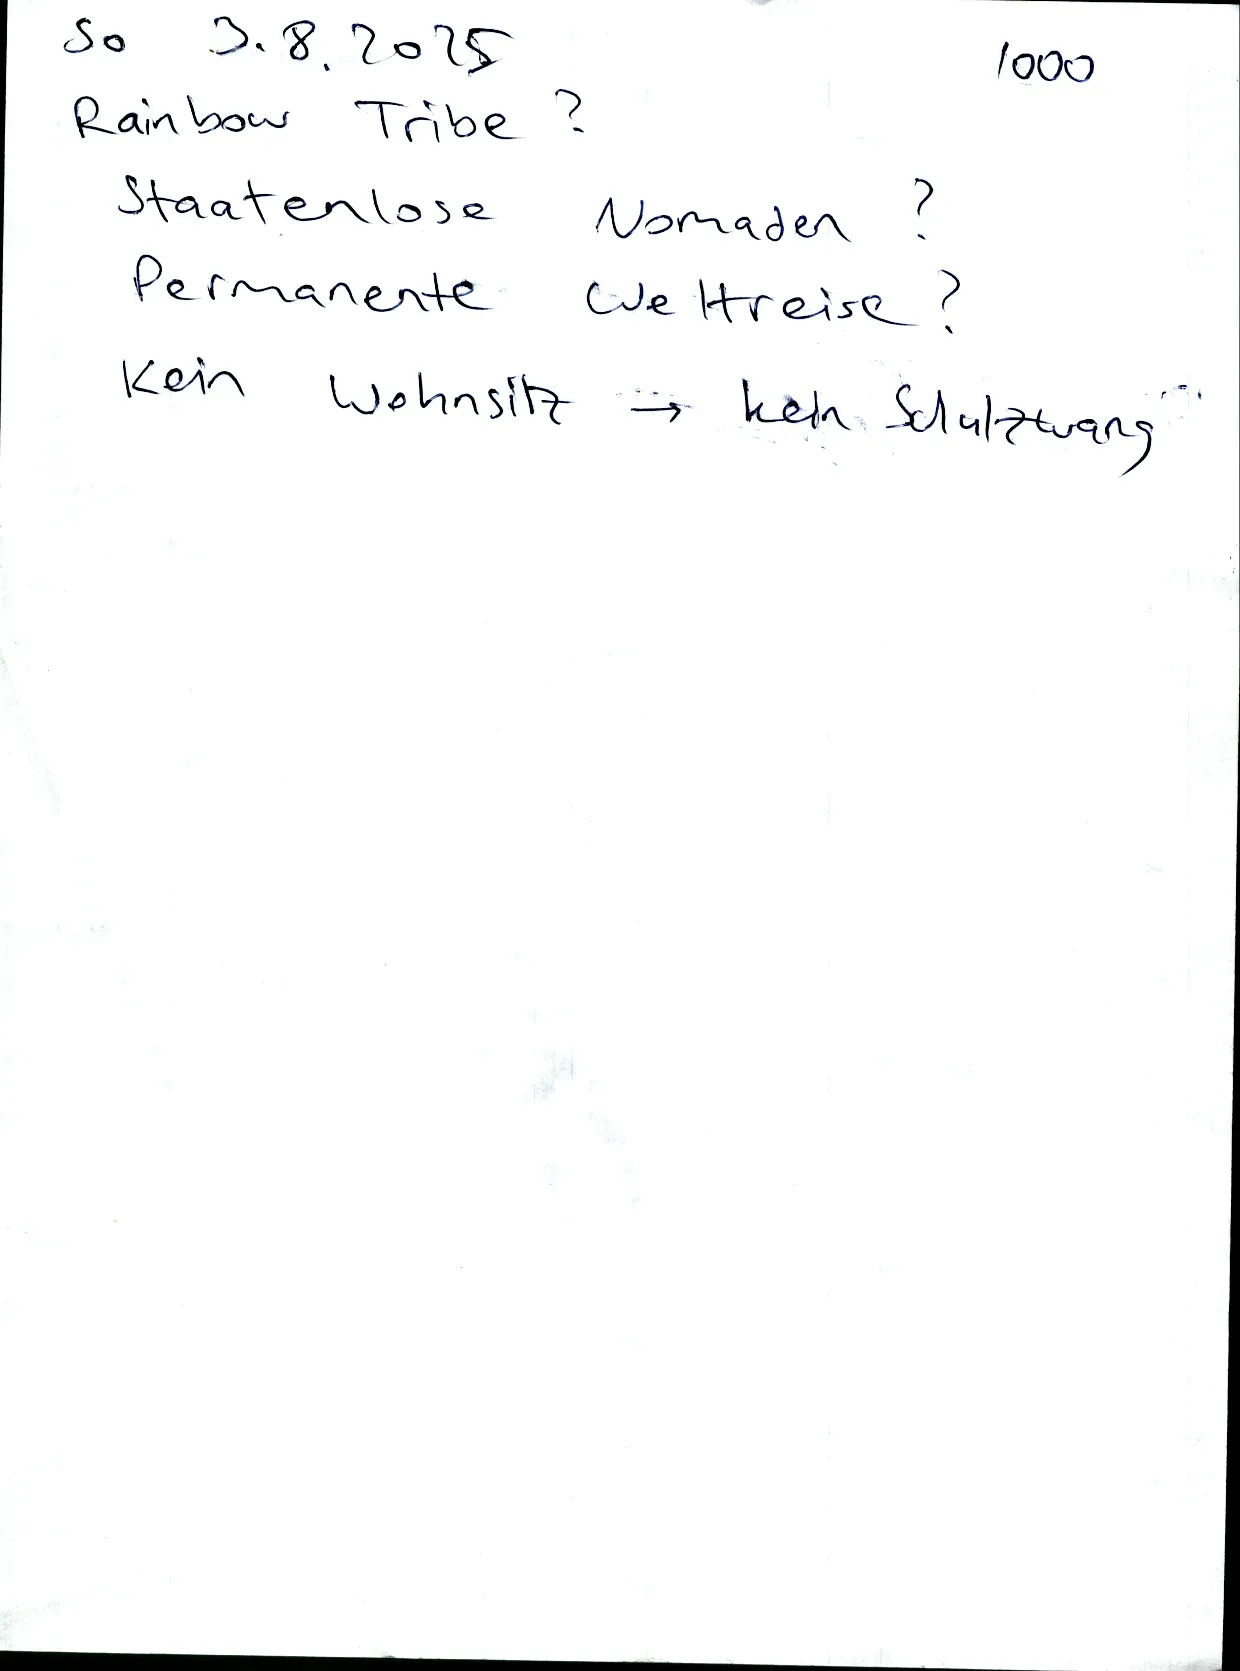 So 3.8.2025
1000
Rainbow Tribe?
Staatenlose Nomaden?
Permanente Weltreise?
Kein Wohnsitz → kein Schulzwang